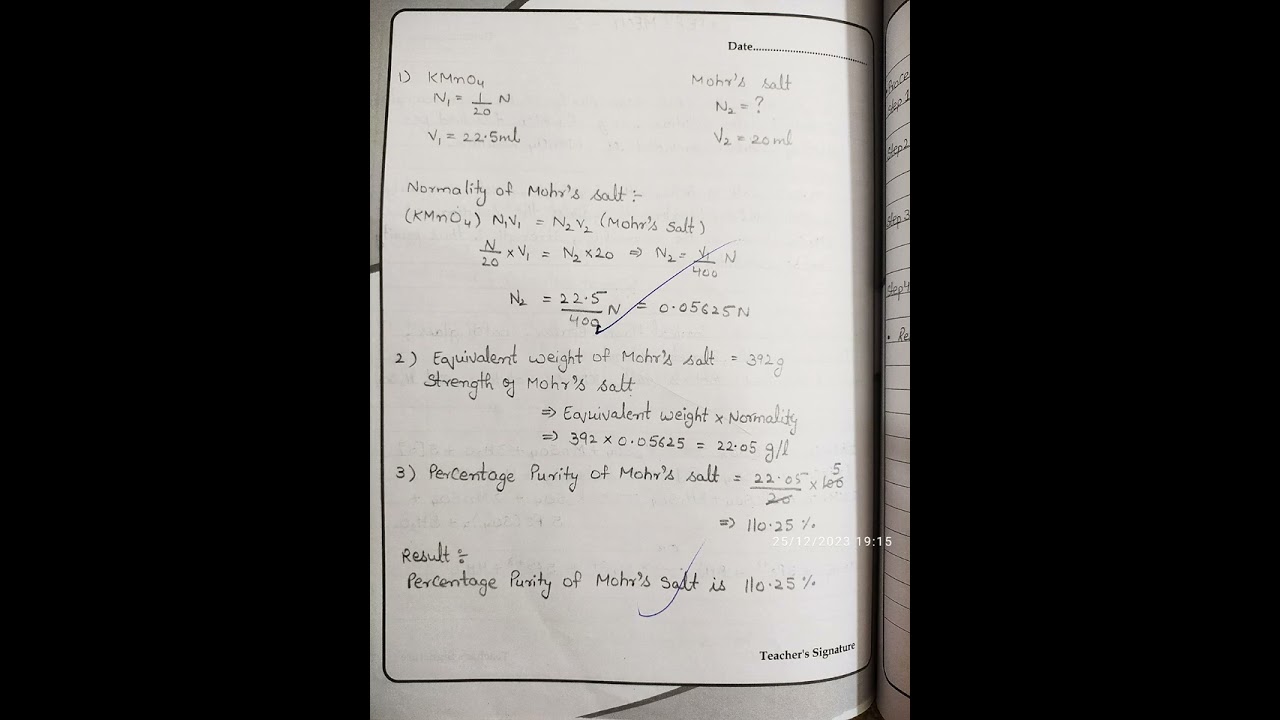 Date
1) KMnO4 Mohr's salt
N1 = 1/20 N N2 = ?
V1 = 22.5ml V2 = 20ml
Normality of Mohr's salt :-
(KMnO4) N1V1 = N2V2 (Mohr's salt)
N/20 × V1 = N2 × 20 ⇒ N2 = V1/400 N
N2 = 22.5/400 N = 0.05625 N
2) Equivalent weight of Mohr's salt = 392g
Strength of Mohr's salt
⇒ Equivalent weight × Normality
⇒ 392 × 0.05625 = 22.05 g/l
3) Percentage Purity of Mohr's salt = 22.05/20 × 100 5
⇒ 110.25 %
25/12/2023 19:15
Result :-
Percentage Purity of Mohr's salt is 110.25 %
Teacher's Signature
Step 1
Step 2
Step 3
Step 4